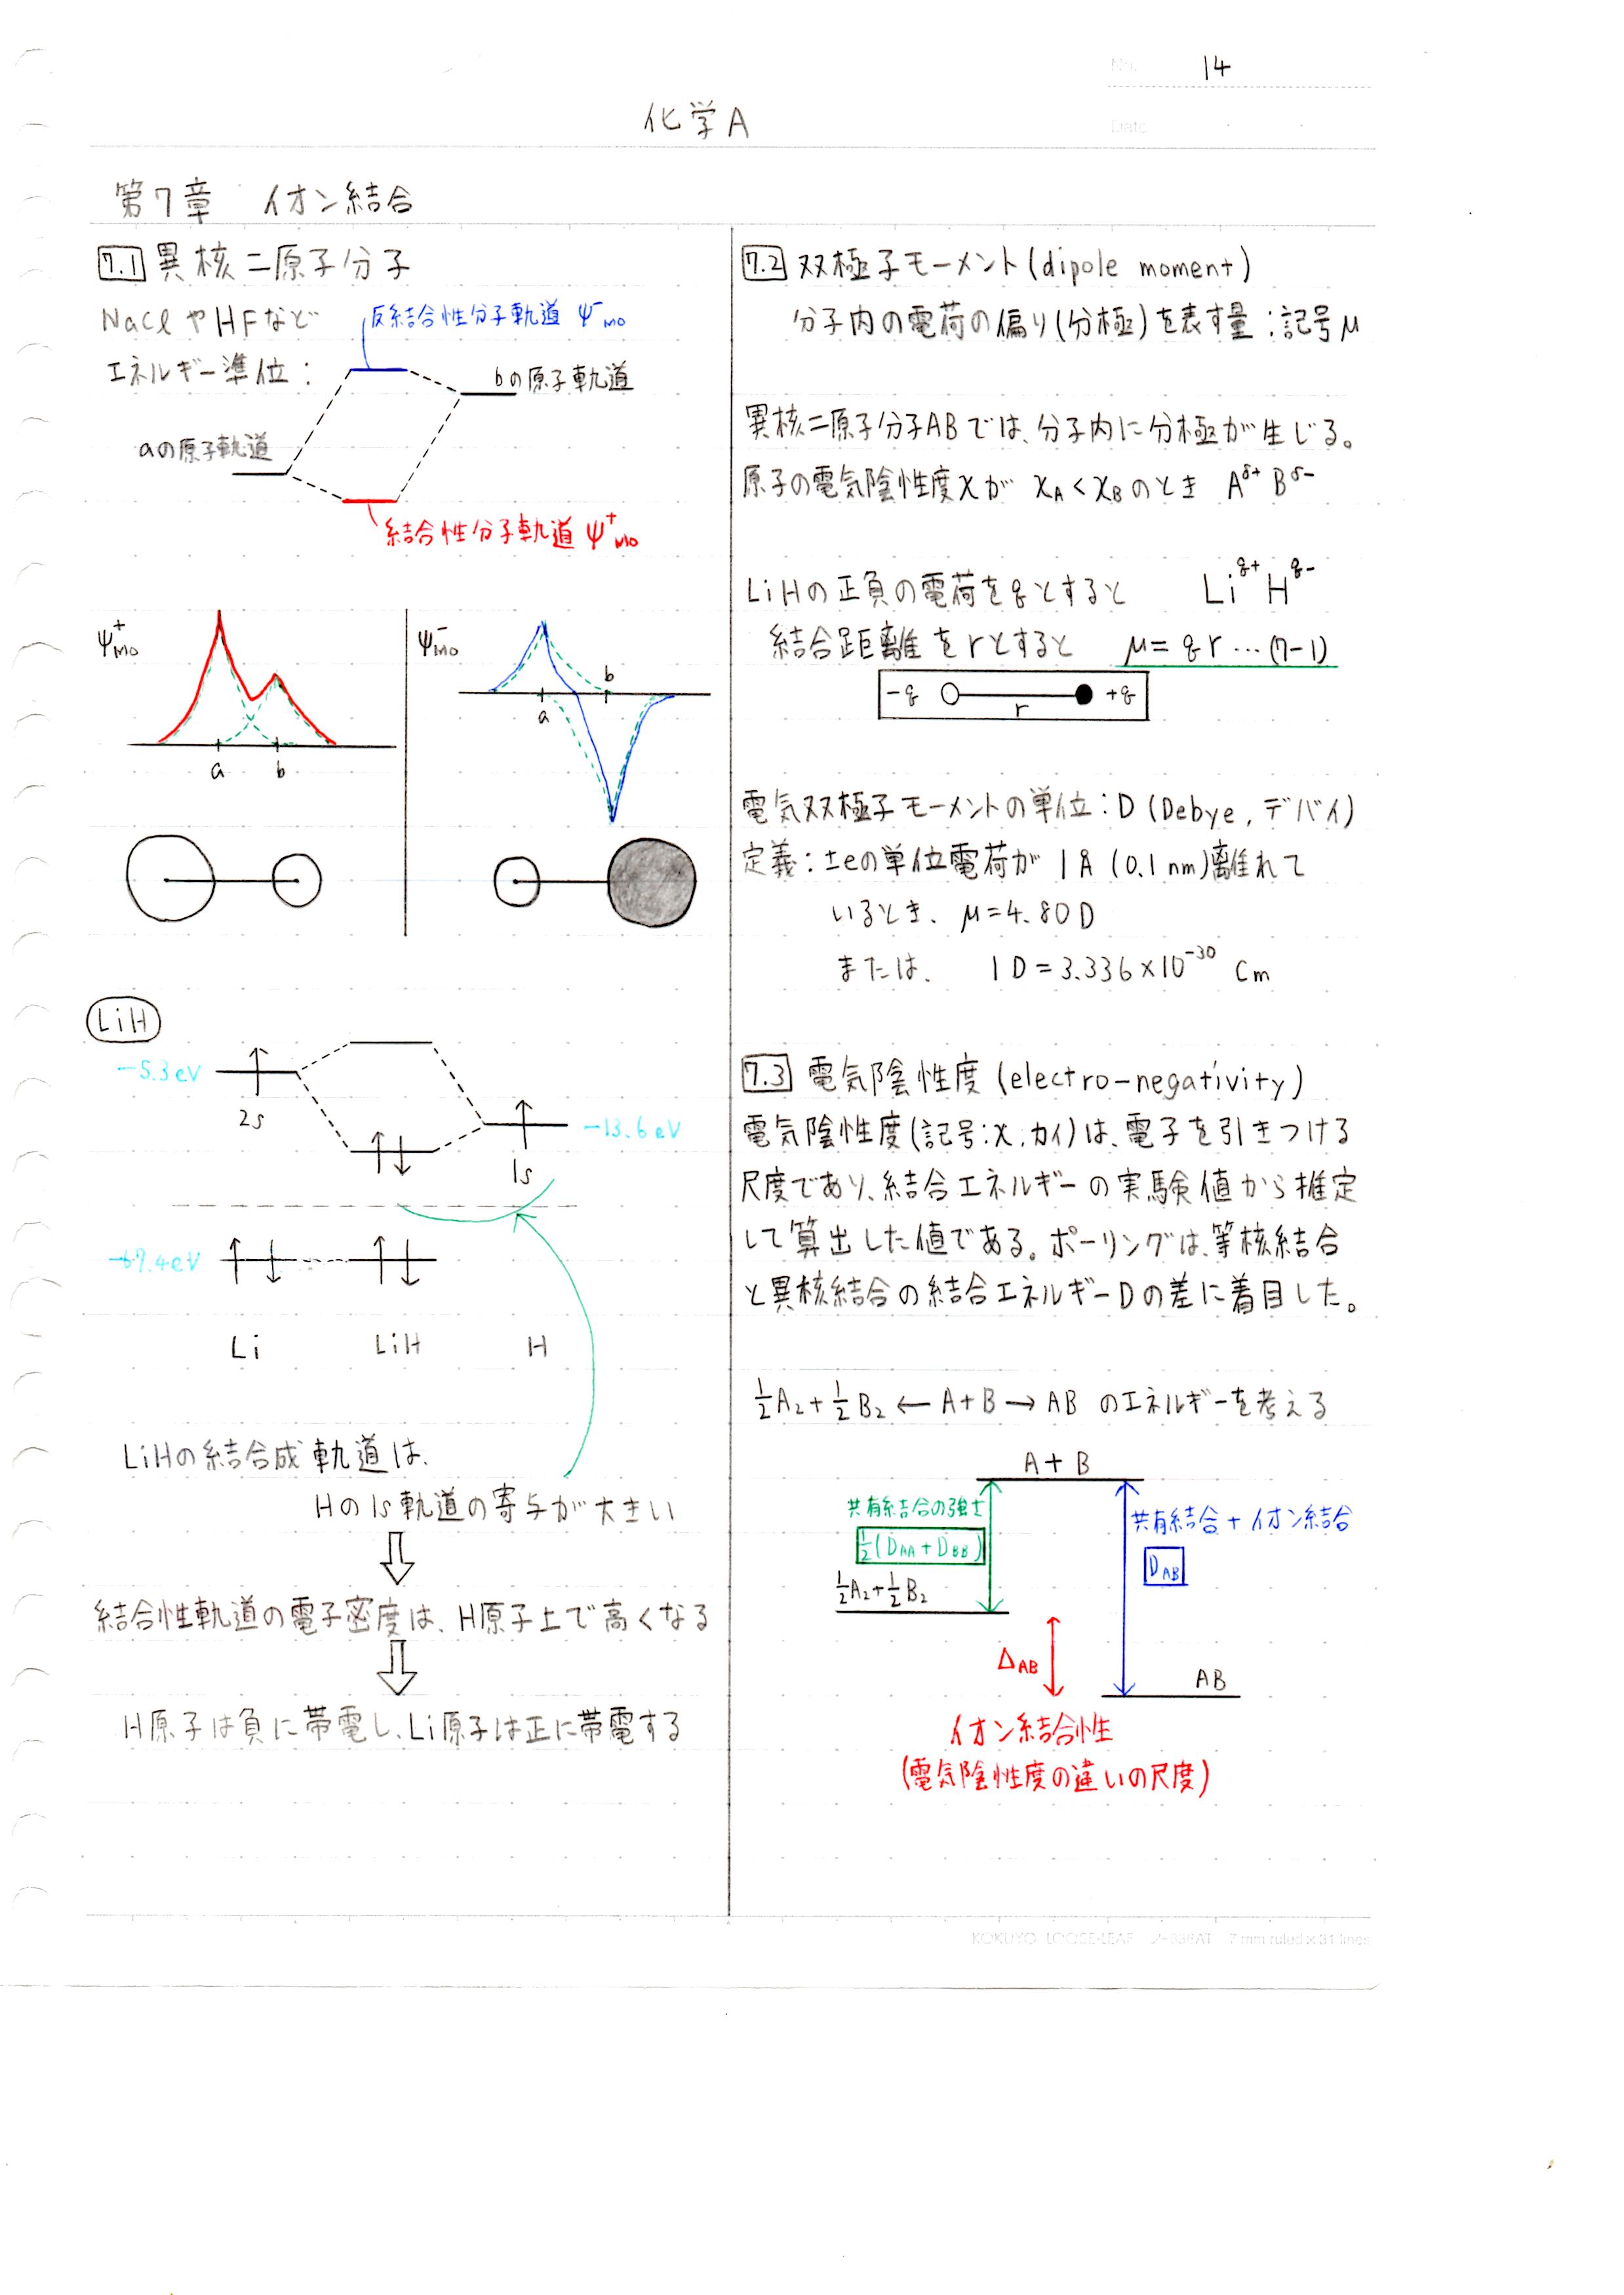 No. 14
化学A
Date
第7章 イオン結合
7.1 異核二原子分子
NaClやHFなど
反結合性分子軌道 Ψ⁻MO
エネルギー準位:
bの原子軌道
aの原子軌道
結合性分子軌道 Ψ⁺MO
Ψ⁺MO
a b
Ψ⁻MO
b
a
LiH
-5.3eV
2s
-13.6eV
1s
-67.4eV
Li LiH H
LiHの結合成軌道は、
Hの1s軌道の寄与が大きい
結合性軌道の電子密度は、H原子上で高くなる
H原子は負に帯電し、Li原子は正に帯電する
7.2 双極子モーメント(dipole moment)
分子内の電荷の偏り(分極)を表す量:記号μ
異核二原子分子ABでは、分子内に分極が生じる。
原子の電気陰性度χが χA<χBのとき Aδ+ Bδ−
LiHの正負の電荷をqとすると Liq+ Hq−
結合距離をrとすると μ=qr…(7-1)
-q r +q
電気双極子モーメントの単位:D (Debye, デバイ)
定義:±eの単位電荷が 1Å (0.1nm)離れて
いるとき、μ=4.80D
または、 1D=3.336×10⁻³⁰ Cm
7.3 電気陰性度 (electro-negativity)
電気陰性度(記号:χ,カイ)は、電子を引きつける
尺度であり、結合エネルギーの実験値から推定
して算出した値である。ポーリングは、等核結合
と異核結合の結合エネルギーDの差に着目した。
½A₂+½B₂←A+B→AB のエネルギーを考える
A+B
共有結合の強さ
½(DAA+DBB)
½A₂+½B₂
共有結合+イオン結合
DAB
ΔAB
AB
イオン結合性
(電気陰性度の違いの尺度)
KOKUYO LOOSE-LEAF ノ-836AT 7 mm ruled×31 lines